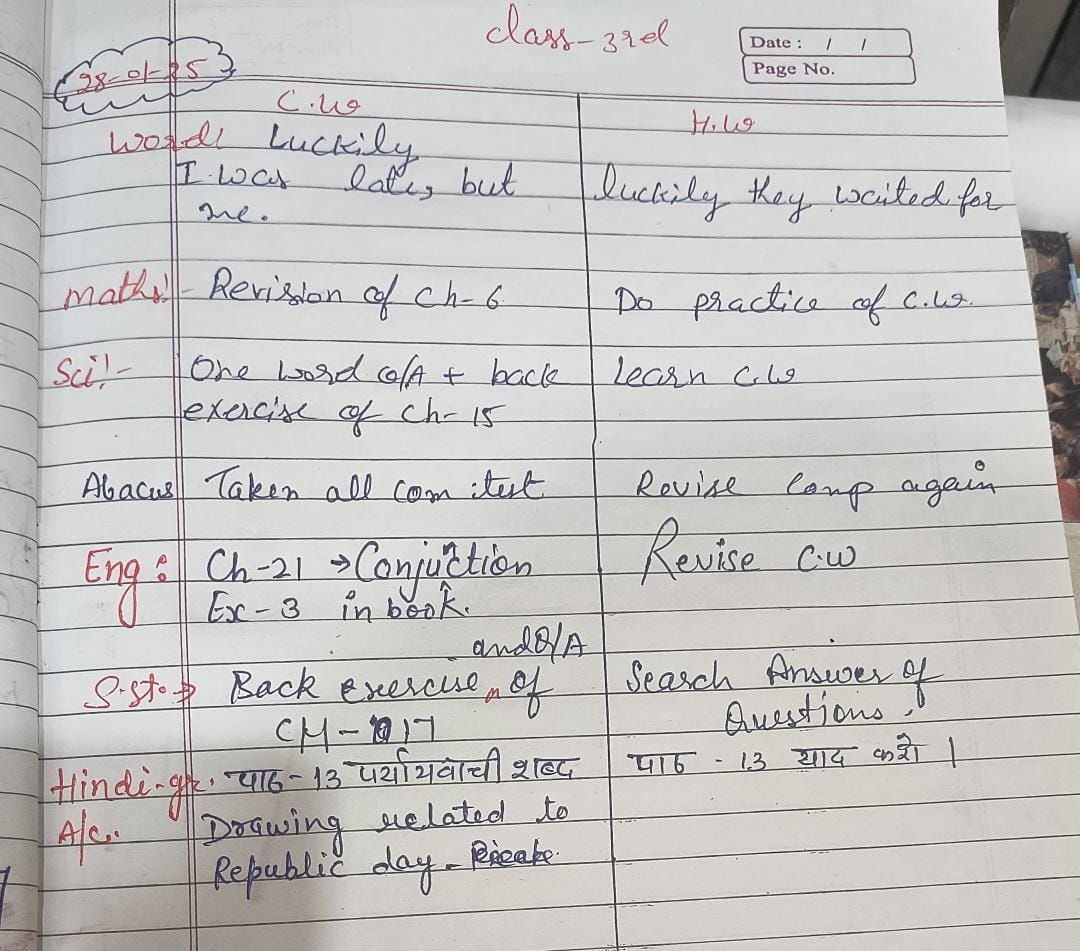 Class-3rd
Date : / /
Page No.
28-01-25
C.W
H.W
Word: Luckily
I was late, but luckily they waited for
me.
Maths:- Revision of Ch-6 Do practice of C.W.
Sci:- One word Q/A + back learn C.W
exercise of Ch-15
Abacus Taken all com test Revise comp again
Eng: Ch-21 → Conjuction Revise C.W
Ex-3 in book.
and Q/A
S.st. → Back exercise of Search Answer of
CH-17 Questions.
Hindi-gr. पाठ-13 पर्यायवाची शब्द पाठ - 13 याद करो |
A/c. Drawing related to
Republic day-